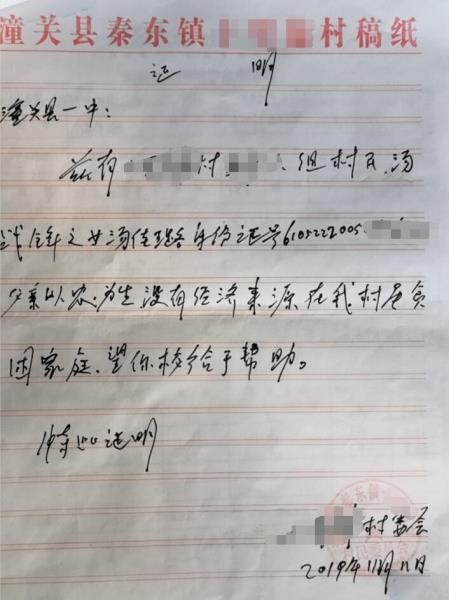 潼关县秦东镇 村稿纸
证 明
潼关县一中:
兹有 村 组村民汤
战锋之女汤佳璐身份证号6105222005
父亲以农为生没有经济来源在我村属贫
困家庭、望你校给于帮助。
特此证明
村委会
2019年11月11日